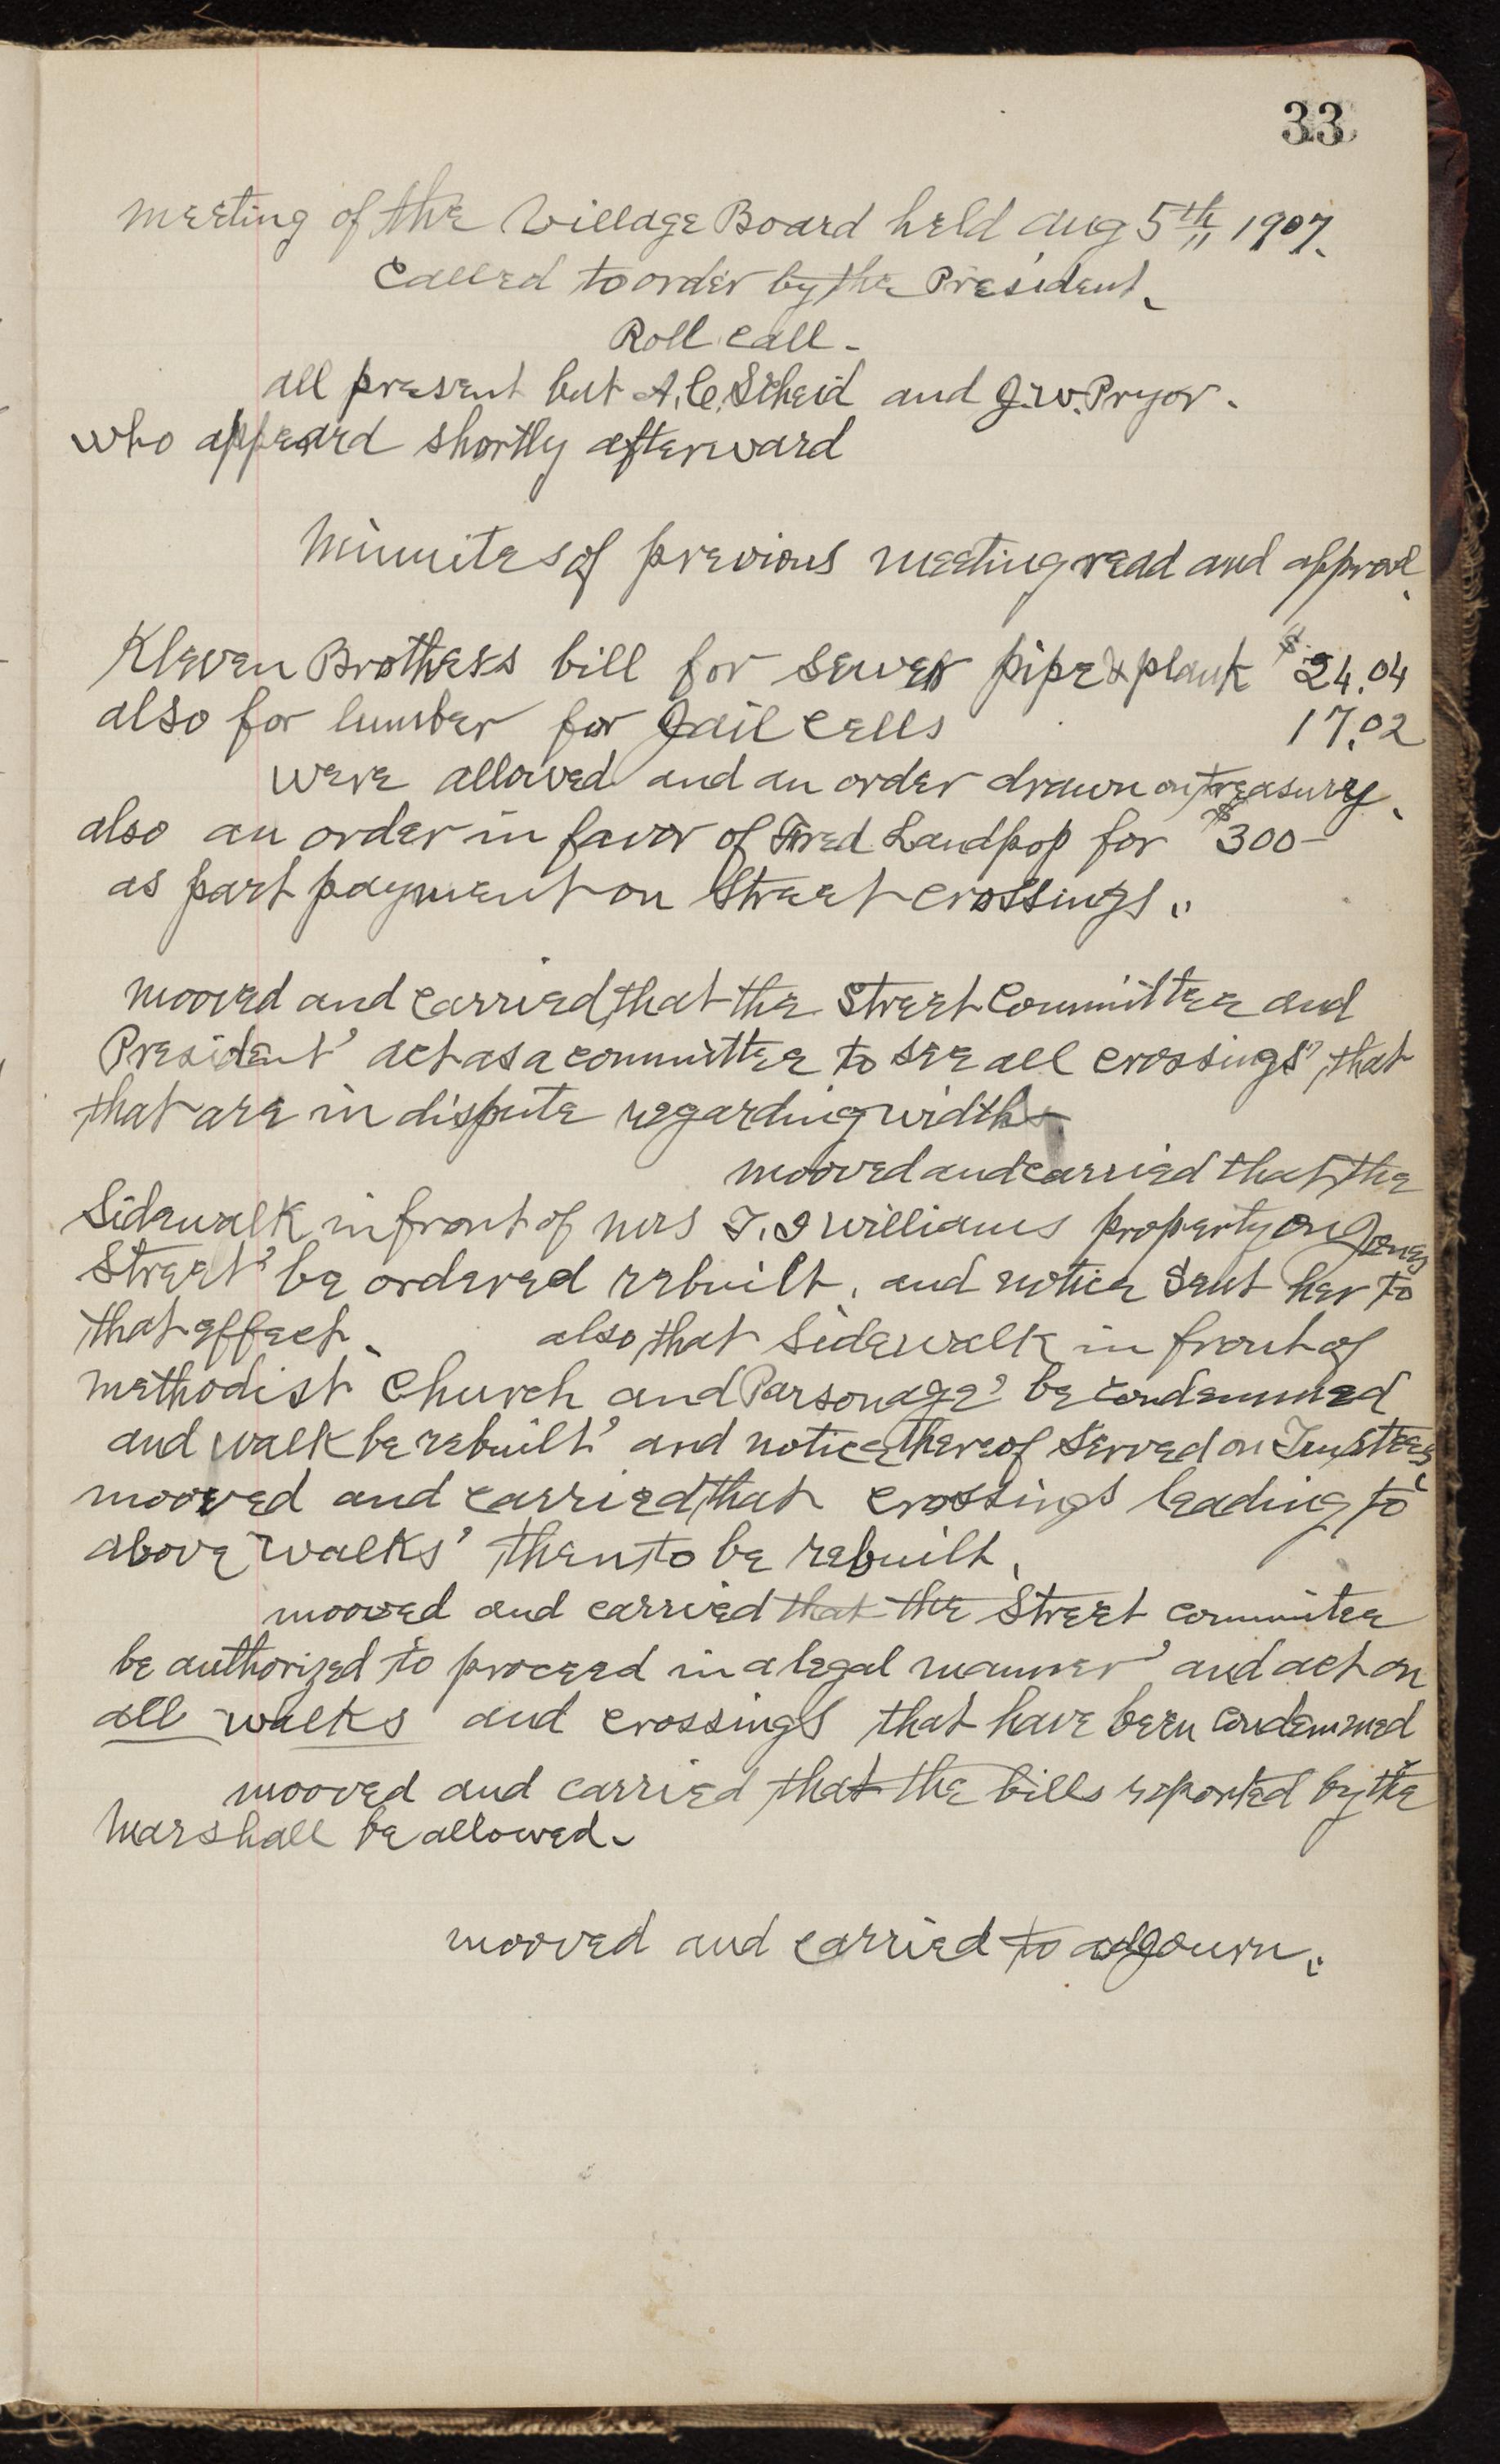 33
meeting of the Village Board held aug 5th 1907.
Called to order by the President.
Roll Call -
all present but A. C. Scheid and J. W. Pryor.
who appeard shortly afterward
Minuites of previous meeting read and approvd.
Kleven Brothers bill for Sewer pipe & plank $24.04
also for lumber for Jail Cells 17.02
were allowed and an order drawn on treasury.
also an order in favor of Fred Landpop for $300-
as part payment on Street crossings.
mooved and carried, that the Street Committee and
President' act as a committee to see all crossings', that
that are in dispute regarding width
mooved and carried that, the
Sidewalk in front of mrs T. J Williams property on Jones
Street' be ordered rebuilt. and notice Sent her to
that effect. also, that Sidewalk in front of
methodist Church and Parsonage' be condemmed
and walk be rebuilt' and notice thereof Served on Trustees.
mooved and carried, that crossings leading to
above walks' then, to be rebuilt.
mooved and carried that the Street commitee
be authorized to proceed in a legal manner' and act on
all walks and crossings that have been condemmed
mooved and carried that the bills reported by the
Marshall be allowed.
mooved and carried to adjourn.